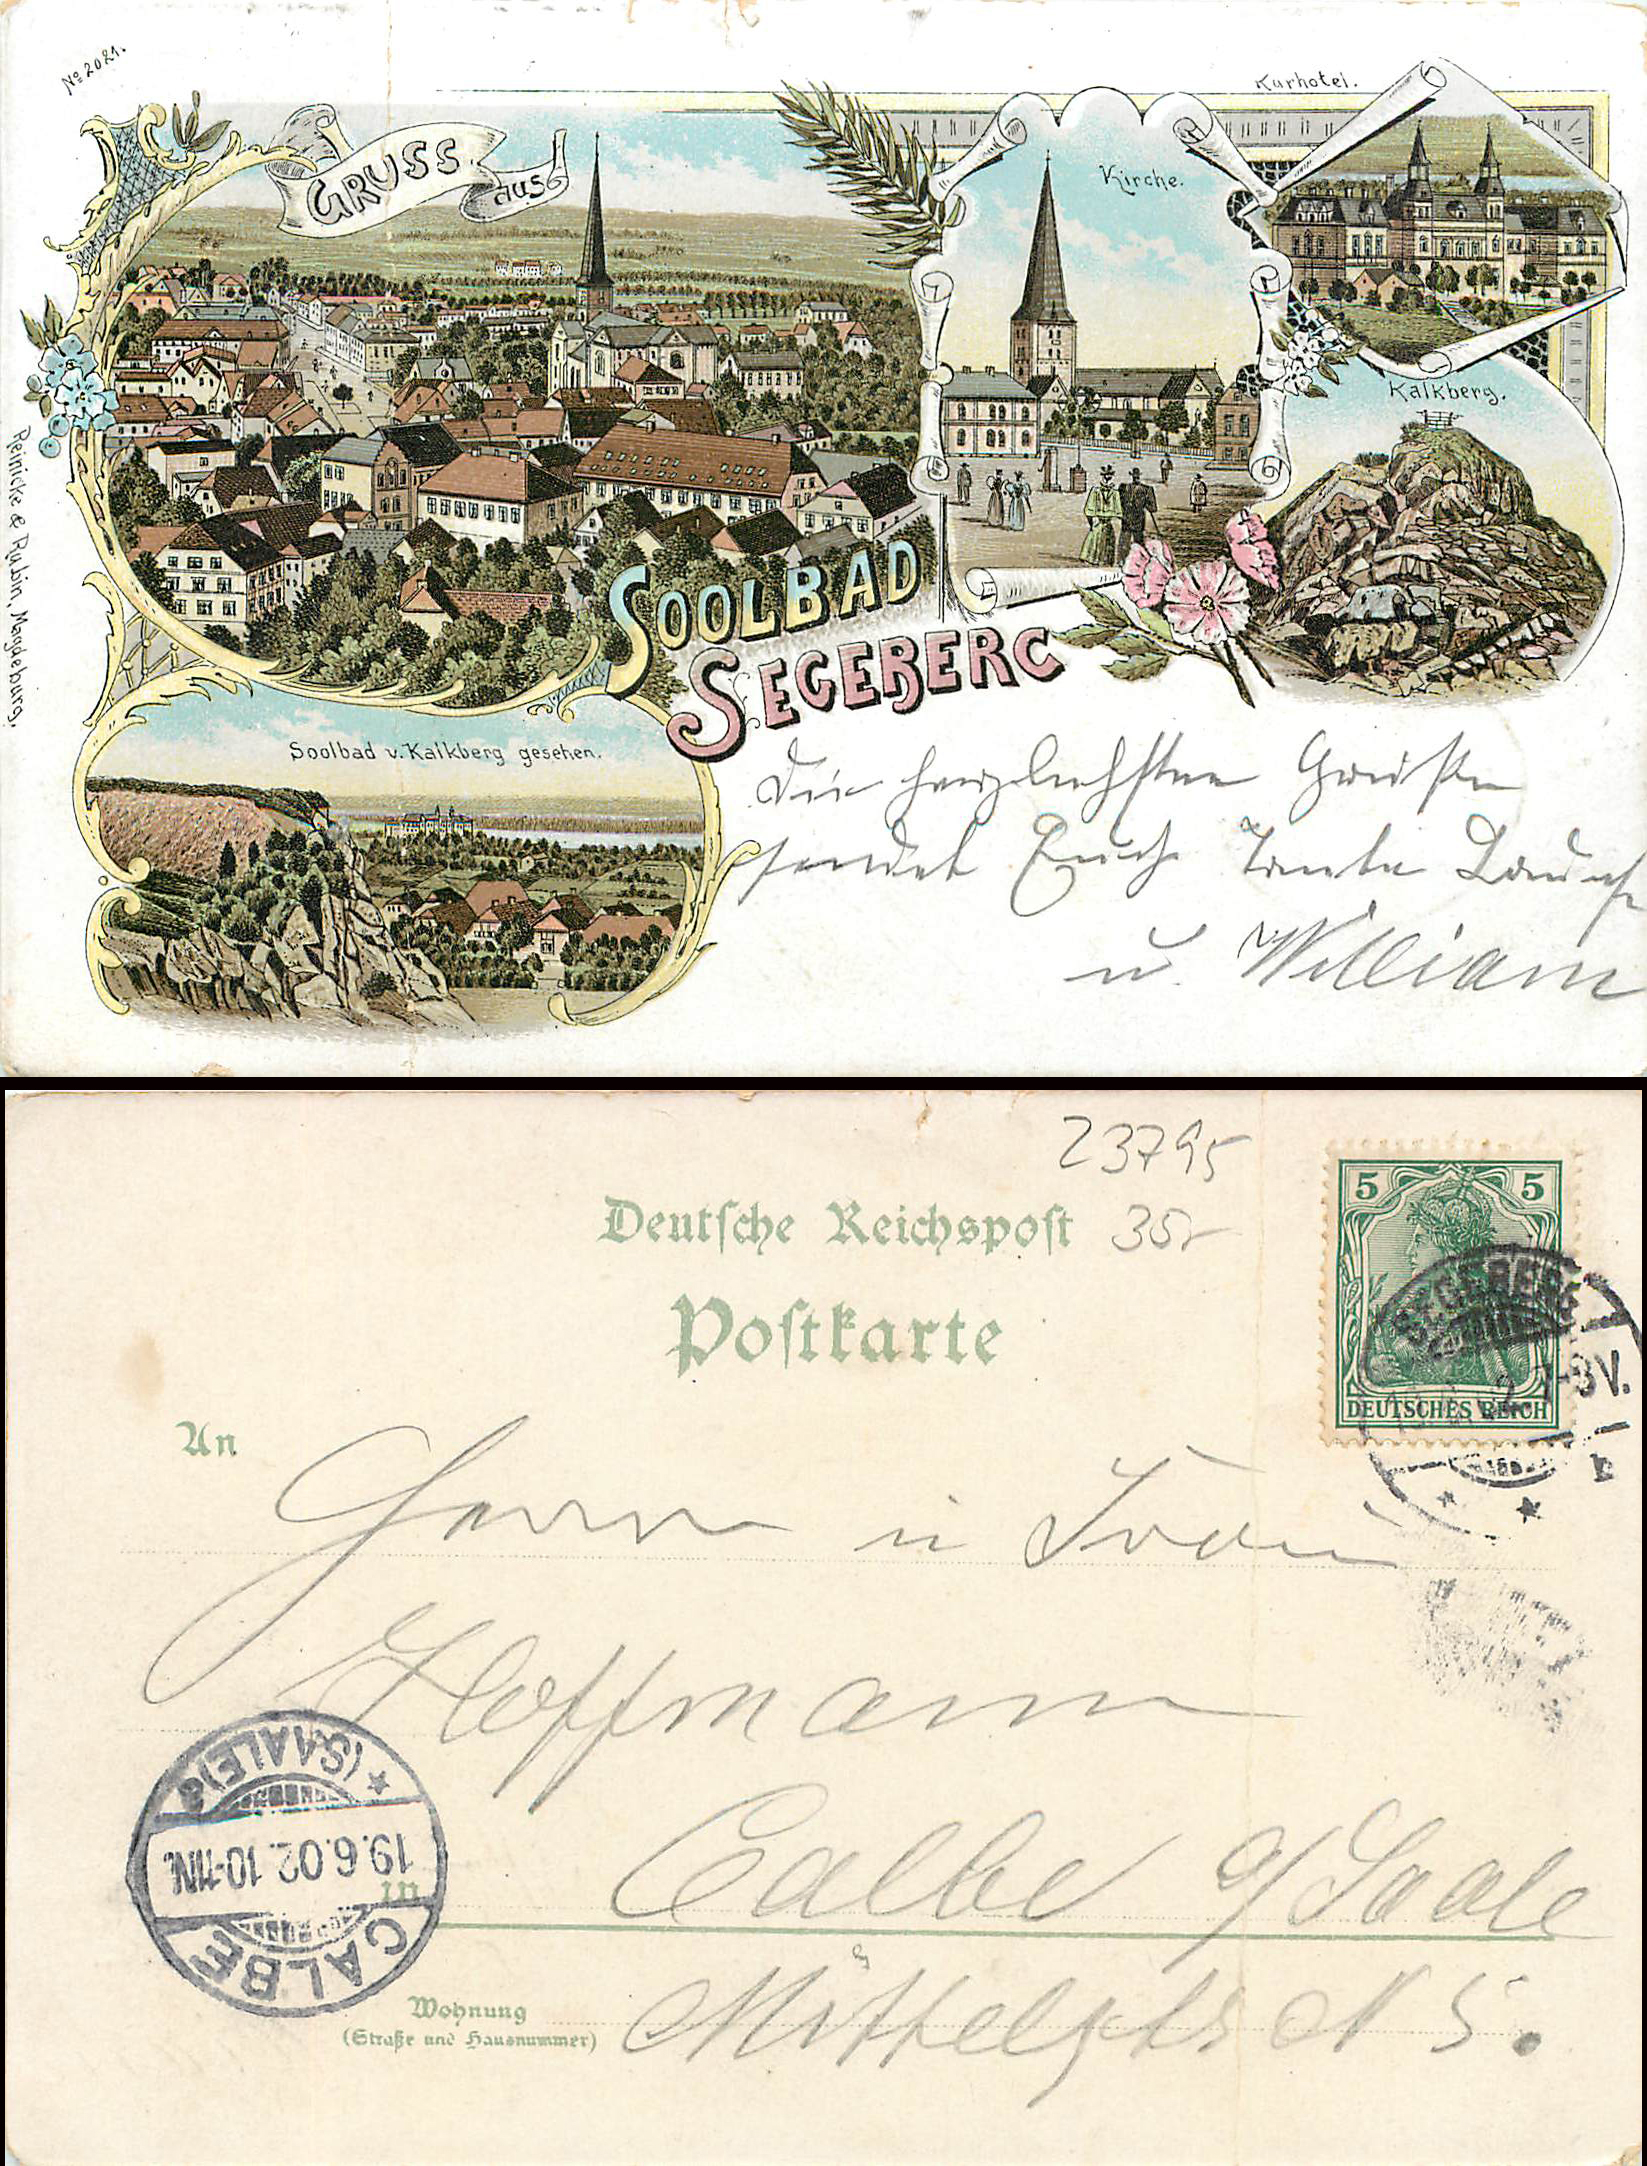 No 2021.
GRUSS aus
Kurhotel.
Kirche.
Kalkberg.
SOOLBAD
SEGEBERG
Soolbad v. Kalkberg gesehen.
Reinicke & Rubin, Magdeburg.
Die herzlichsten Grüße
sendet Euch Tante
u. William
23795
Deutsche Reichspost
35,-
Postkarte
5 5
DEUTSCHES REICH
SEGEBERG
7-8V.
An
Herrn u Frau
Hoffmann
Calbe a/Saale
in
CALBE
19.6.02. 10-11N.
(SAALE) a
Wohnung
(Straße und Hausnummer)
Mittelstr N 5.